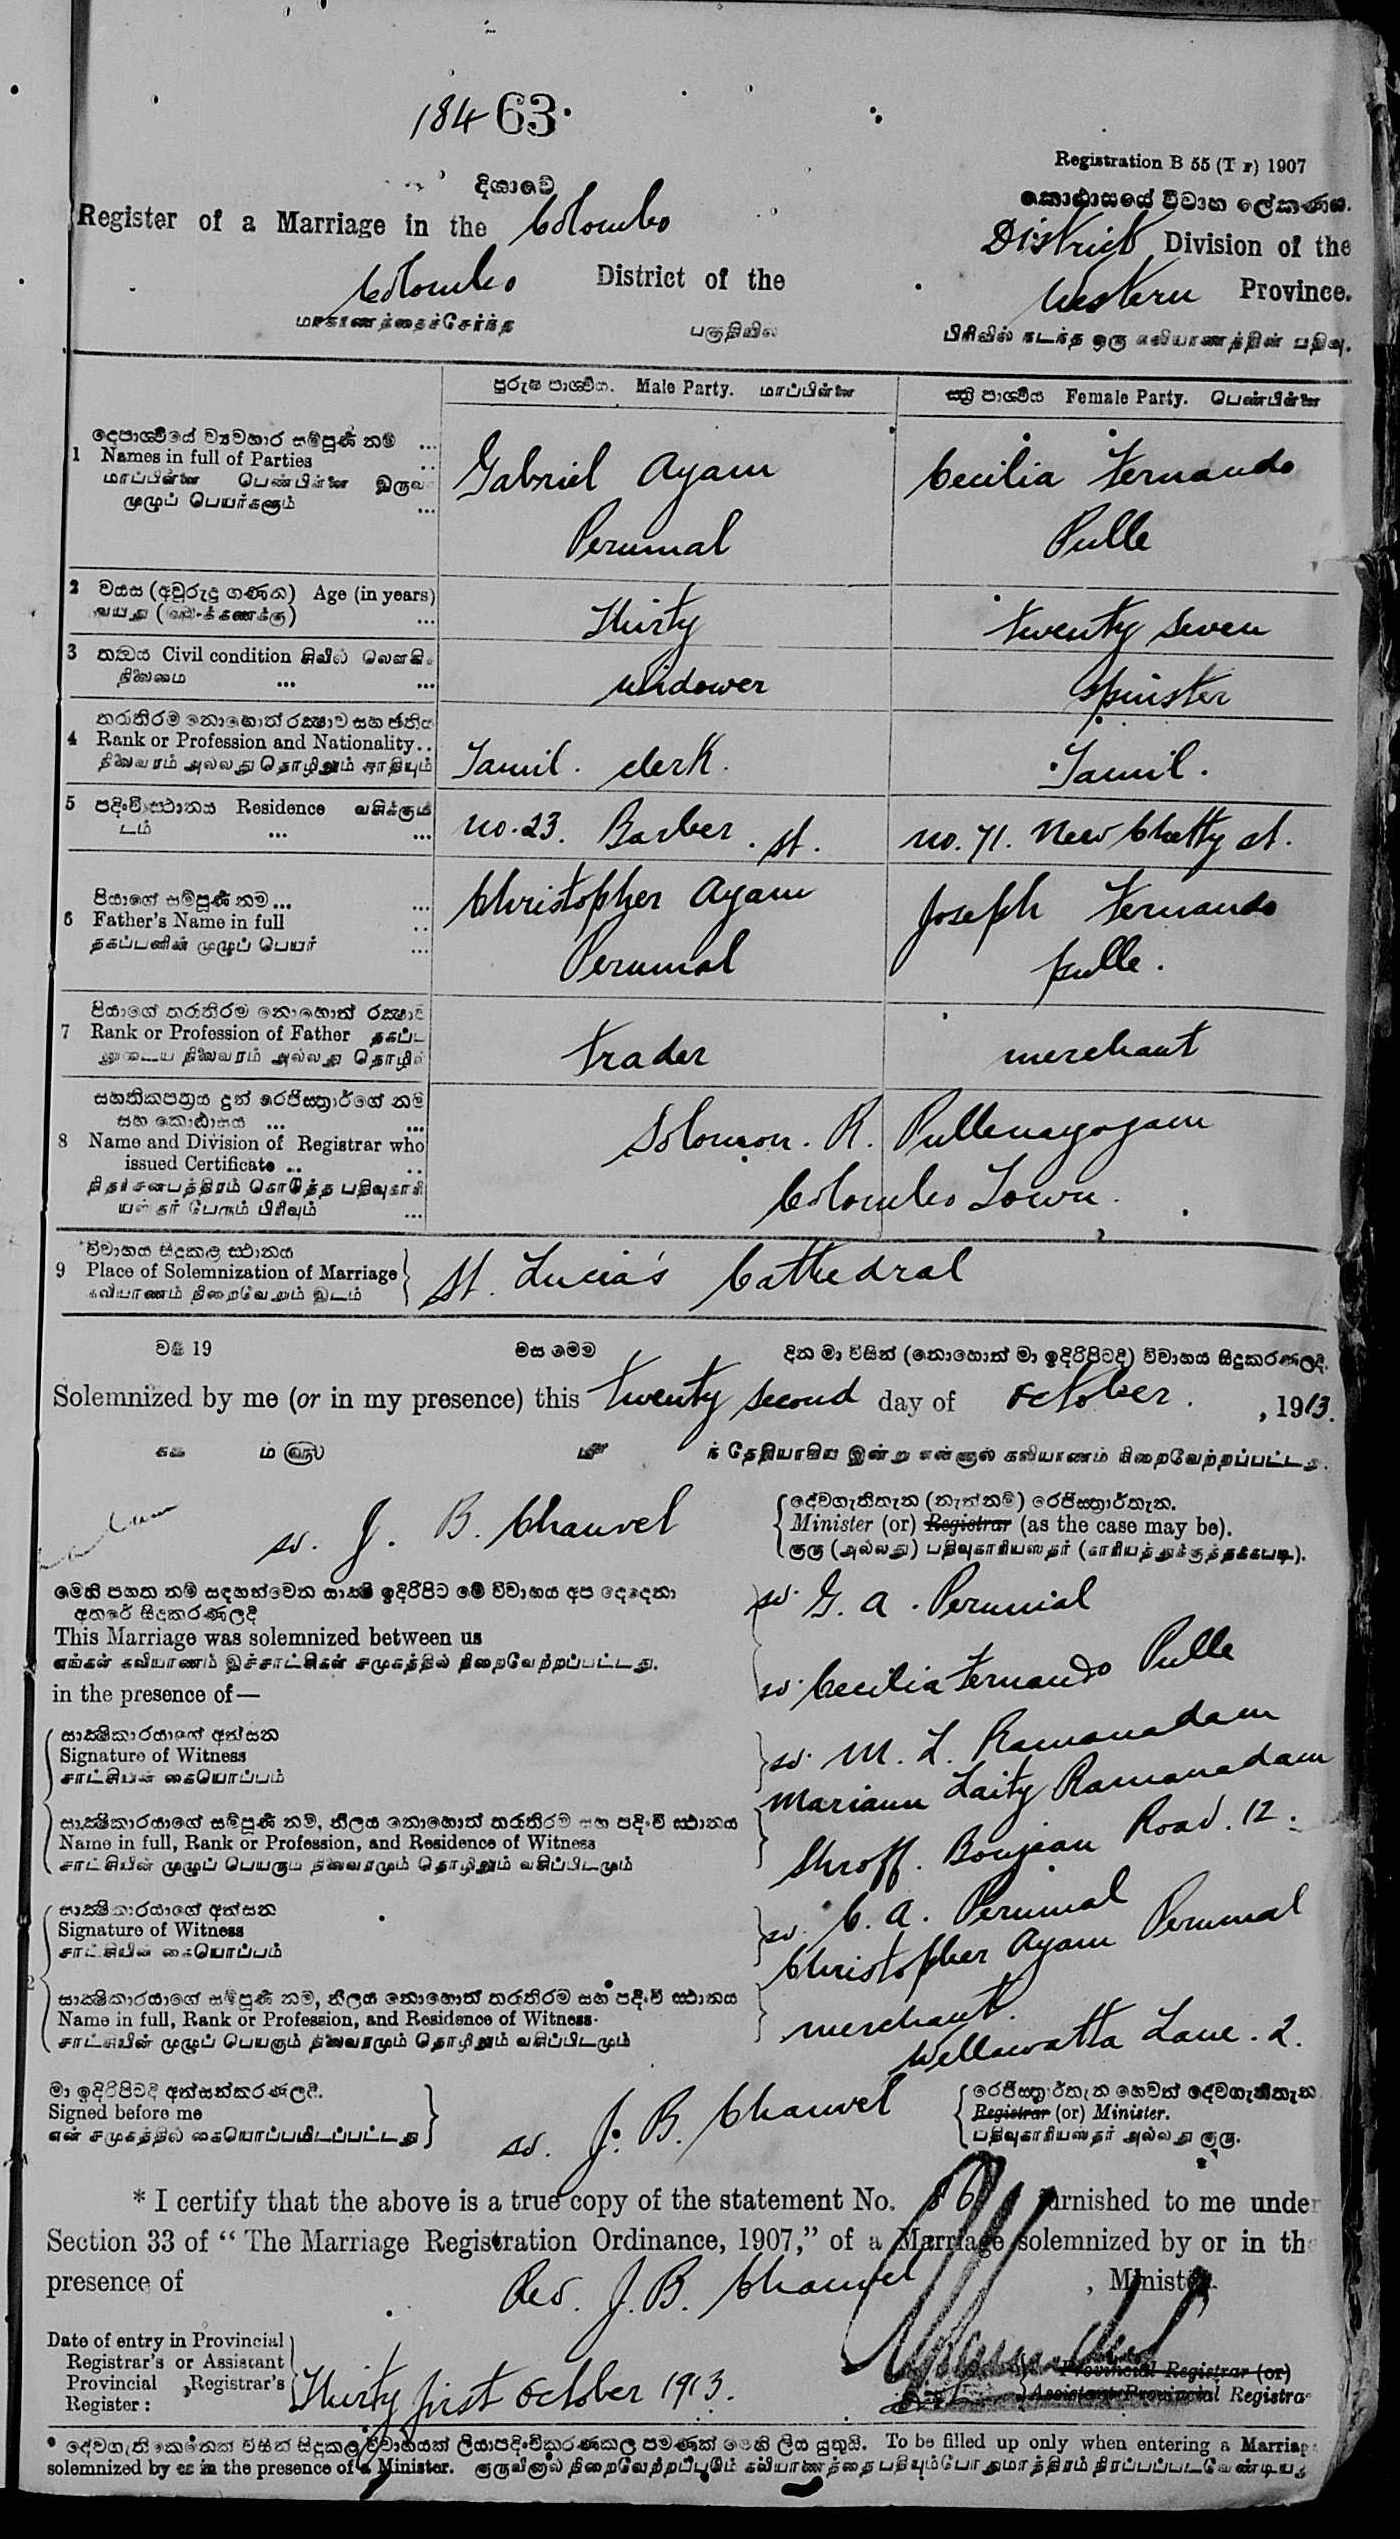 184 63.
Registration B 55 (T r) 1907
දිසාවේ
කොඨාසයේ විවාහ ලේකණය.
Register of a Marriage in the Colombo District Division of the
Colombo District of the Western Province.
மாகாணத்தைச்சேர்ந்த பகுதியில் பிரிவில் நடந்த ஒரு கலியாணத்தின் பதிவு.
පුරුෂ පාශ්වීය. Male Party. மாப்பிள்ளை
ස්ත්‍රී පාශ්වීය Female Party. பெண்பிள்ளை
දෙපාශ්වීයේ ව්‍යවහාර සම්පූර්‍ණ නම් ...
1 Names in full of Parties
மாப்பிள்ளை பெண்பிள்ளை இருவ
முழுப் பெயர்களும் ...
Gabriel Ayam Perumal
Cecilia Fernando Pulle
2 වයස (අවුරුදු ගණන) Age (in years)
வயது
Thirty
twenty seven
3 තත්‍වය Civil condition சிவில்
நிலைமை ... ...
widower
Spinster
තරාතිරම නොහොත් රක්‍ෂාව සහ ජාතිය
4 Rank or Profession and Nationality..
நிலைவரம் அல்லது தொழிலும் சாதியும்
Tamil. clerk.
Tamil.
5 පදිංචි ස්ථානය Residence வசிக்கும்
டம் ... ...
no. 23. Barber. st.
no. 71. New Chetty st.
පියාගේ සම්පූර්‍ණ නම ... ...
6 Father's Name in full ..
தகப்பனின் முழுப் பெயர் ...
Christopher Ayam Perumal
Joseph Fernando pulle.
පියාගේ තරාතිරම නොහොත් රක්‍ෂාව
7 Rank or Profession of Father தகப்ப
னுடைய நிலைவரம் அல்லது தொழில்
trader
merchant
සහතිකපත්‍රය දුන් රෙජිස්ත්‍රාර්ගේ නම
සහ කොඨාසය ... ...
8 Name and Division of Registrar who
issued Certificate .. ..
பெரும் பிரிவும் ...
Solomon. R. Pullenayagam
Colombo Town.
විවාහය සිදුකළ ස්ථානය
9 Place of Solemnization of Marriage
கலியாணம் நிறைவேறும் இடம்
St. Lucia's Cathedral
වර්‍ෂ 19 මස මෙම දින මා විසින් (නොහොත් මා ඉදිරිපිටදී) විවාහය සිදුකරණලදී.
Solemnized by me (or in my presence) this twenty second day of october. , 1913.
ந் தேதியாகிய இன்று என்னால் கலியாணம் நிறைவேற்றப்பட்டது.
sd. J. B. Chauvel
දේවගැතිතැන (නැත්නම්) රෙජිස්ත්‍රාර්තැන.
Minister (or) Registrar (as the case may be).
குரு (அல்லது) பதிவுகாரியஸ்தர் (காரியத்துக்குத்தக்கபடி).
මෙහි පහත නම් සඳහන්වෙන සාක්‍ෂි ඉදිරිපිට මේ විවාහය අප දෙදෙනා
අතරේ සිදුකරණලදී
This Marriage was solemnized between us
எங்கள் கலியாணம் இச்சாட்சிகள் சமுகத்தில் நிறைவேற்றப்பட்டது.
in the presence of—
sd. G. A. Perumal
sd. Cecilia Fernando Pulle
සාක්‍ෂිකාරයාගේ අත්සන
Signature of Witness
சாட்சியின் கையொப்பம்
sd. M. L. Ramanadam
සාක්‍ෂිකාරයාගේ සම්පූර්‍ණ නම, නිලය නොහොත් තරාතිරම සහ පදිංචි ස්ථානය
Name in full, Rank or Profession, and Residence of Witness
சாட்சியின் முழுப் பெயரும் நிலைவரமும் தொழிலும் வசிப்பிடமும்
Mariann Laity Ramanadam
Shroff. Bonjean Road. 12.
සාක්‍ෂිකාරයාගේ අත්සන
Signature of Witness
சாட்சியின் கையொப்பம்
sd. C. A. Perumal
2
සාක්‍ෂිකාරයාගේ සම්පූර්‍ණ නම, නිලය නොහොත් තරාතිරම සහ පදිංචි ස්ථානය
Name in full, Rank or Profession, and Residence of Witness.
சாட்சியின் முழுப் பெயரும் நிலைவரமும் தொழிலும் வசிப்பிடமும்
Christopher Ayam Perumal
merchant.
Wellawatta Lane. 2.
මා ඉදිරිපිටදී අත්සන්කරණලදී.
Signed before me
என் சமுகத்தில் கையொப்பமிடப்பட்டது
sd. J. B. Chauvel
රෙජිස්ත්‍රාර්තැන හෙවත් දේවගැතිතැන
Registrar (or) Minister.
பதிவுகாரியஸ்தர் அல்லது குரு.
* I certify that the above is a true copy of the statement No. 86 furnished to me under
Section 33 of "The Marriage Registration Ordinance, 1907," of a Marriage solemnized by or in the
presence of Rev. J. B. Chauvel , Minister.
Date of entry in Provincial
Registrar's or Assistant
Provincial Registrar's
Register:
Thirty first October 1913.
Provincial Registrar (or)
Assistant Provincial Registrar
* දේවගැති කෙනෙක් විසින් සිදුකළ විවාහයක් ලියාපදිංචිකරණකල පමණක් මෙහි ලිය යුතුයි. To be filled up only when entering a Marriage
solemnized by or in the presence of a Minister. குருவினால் நிறைவேற்றப்படும் கலியாணத்தை பதியும்போதுமாத்திரம் நிரப்பப்படவேண்டியது